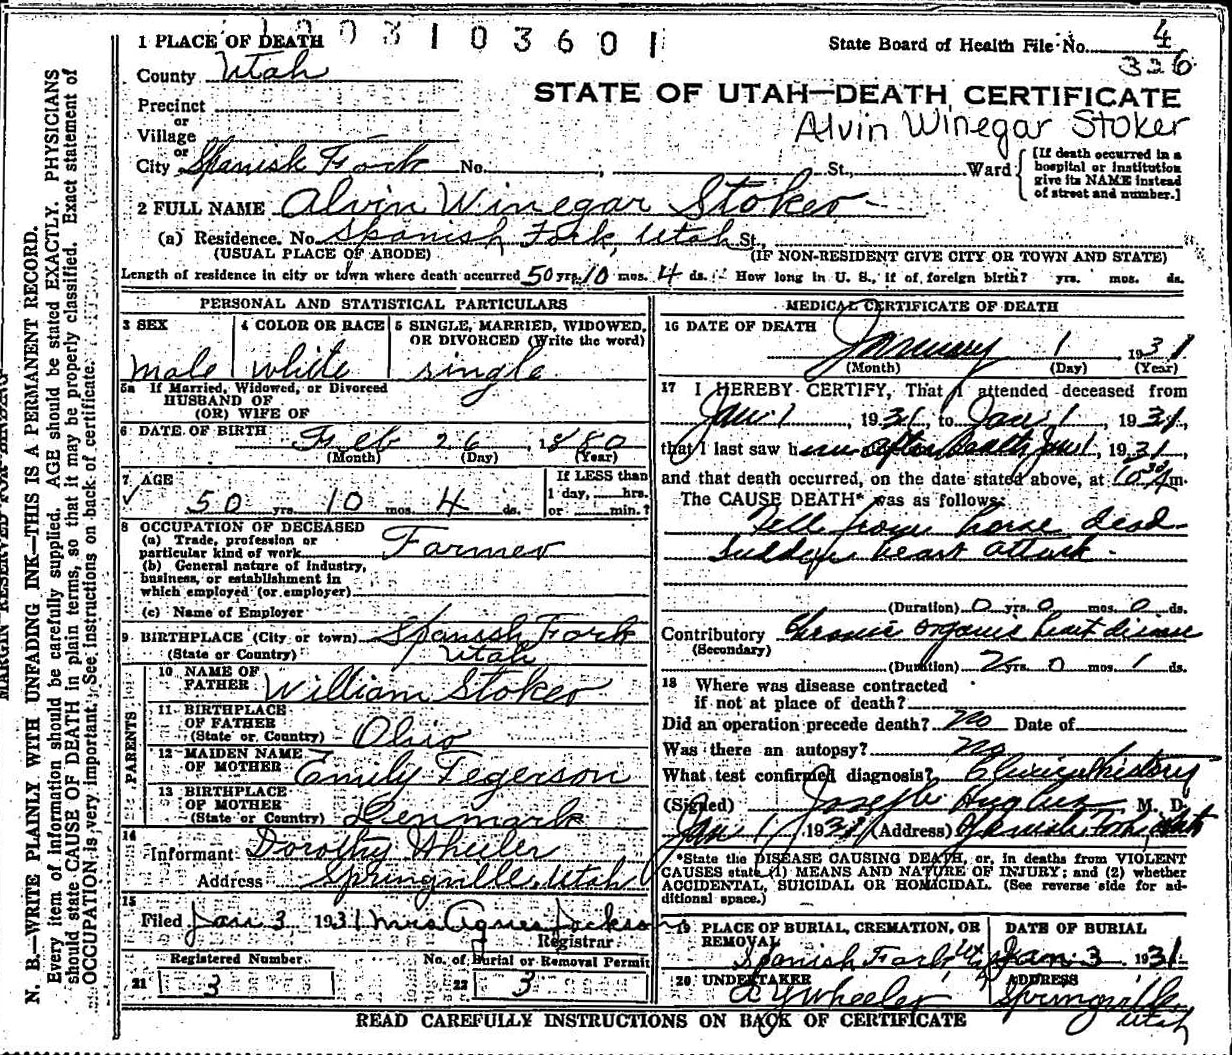 1003103601
State Board of Health File No. 4
326
1 PLACE OF DEATH
County Utah
STATE OF UTAH—DEATH CERTIFICATE
Precinct
or
Village
Alvin Winegar Stoker
or
City Spanish Fork No. ; St., Ward
[If death occurred in a hospital or institution give its NAME instead of street and number.]
2 FULL NAME Alvin Winegar Stoker
(a) Residence. No. Spanish Fork, Utah St.,
(USUAL PLACE OF ABODE) (IF NON-RESIDENT GIVE CITY OR TOWN AND STATE)
Length of residence in city or town where death occurred 50 yrs. 10 mos. 4 ds. How long in U. S., if of foreign birth? yrs. mos. ds.
PERSONAL AND STATISTICAL PARTICULARS
3 SEX
male
4 COLOR OR RACE
white
5 SINGLE, MARRIED, WIDOWED, OR DIVORCED (Write the word)
single
5a If Married, Widowed, or Divorced
HUSBAND OF
(OR) WIFE OF
6 DATE OF BIRTH Feb 26 1880
(Month) (Day) (Year)
7 AGE
50 yrs. 10 mos. 4 ds.
If LESS than
1 day, hrs.
or min.?
8 OCCUPATION OF DECEASED
(a) Trade, profession or
particular kind of work Farmer
(b) General nature of industry,
business, or establishment in
which employed (or employer)
(c) Name of Employer
9 BIRTHPLACE (City or town) Spanish Fork
(State or Country) Utah
PARENTS
10 NAME OF
FATHER William Stoker
11 BIRTHPLACE
OF FATHER
(State or Country) Ohio
12 MAIDEN NAME
OF MOTHER Emily Tegerson
13 BIRTHPLACE
OF MOTHER
(State or Country) Denmark
14
Informant Dorothy Wheeler
Address Springville, Utah
15
Filed Jan 3 1931 Mrs Agnes Jackson
Registrar
Registered Number
21 3
No. of Burial or Removal Permit
22 3
MEDICAL CERTIFICATE OF DEATH
16 DATE OF DEATH
January 1, 1931
(Month) (Day) (Year)
17 I HEREBY CERTIFY, That I attended deceased from
Jan 1, 1931, to Jan 1, 1931,
that I last saw him after death Jan 1, 1931,
and that death occurred, on the date stated above, at 10 30 A m.
The CAUSE DEATH* was as follows:
Fell from horse dead
sudden heart attack.
(Duration) 0 yrs. 0 mos. 0 ds.
Contributory Chronic organic heart disease
(Secondary)
(Duration) 2 yrs. 0 mos. 1 ds.
18 Where was disease contracted
if not at place of death?
Did an operation precede death? No Date of
Was there an autopsy? No
What test confirmed diagnosis? Clinical history
(Signed) Joseph Hughes M. D.
Jan 1, 1931 (Address) Spanish Fork, Utah
*State the DISEASE CAUSING DEATH, or, in deaths from VIOLENT
CAUSES state (1) MEANS AND NATURE OF INJURY; and (2) whether
ACCIDENTAL, SUICIDAL OR HOMICIDAL. (See reverse side for ad-
ditional space.)
19 PLACE OF BURIAL, CREMATION, OR
REMOVAL
Spanish Fork Ut
DATE OF BURIAL
Jan 3 1931
20 UNDERTAKER
A Y Wheeler
ADDRESS
Springville
Utah
READ CAREFULLY INSTRUCTIONS ON BACK OF CERTIFICATE
MARGIN RESERVED FOR BINDING
N. B.—WRITE PLAINLY WITH UNFADING INK—THIS IS A PERMANENT RECORD.
Every item of information should be carefully supplied. AGE should be stated EXACTLY. PHYSICIANS
should state CAUSE OF DEATH in plain terms, so that it may be properly classified. Exact statement of
OCCUPATION is very important. See instructions on back of certificate.